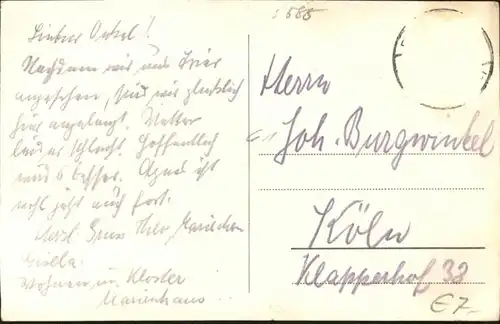 5555
Lieber Onkel!
Nachdem wir uns Trier
angesehen, sind wir glücklich
hier angelangt. Wetter
leider schlecht. Hoffentlich
wird's besser. Agnes ist
wohl jetzt auch fort.
Herzl. Gruss Theo, Mariechen
Gisela.
Wohnen im Kloster
Marienhaus.
Herrn
Joh. Burgwinkel
Köln
Klapperhof, 38
€7,-